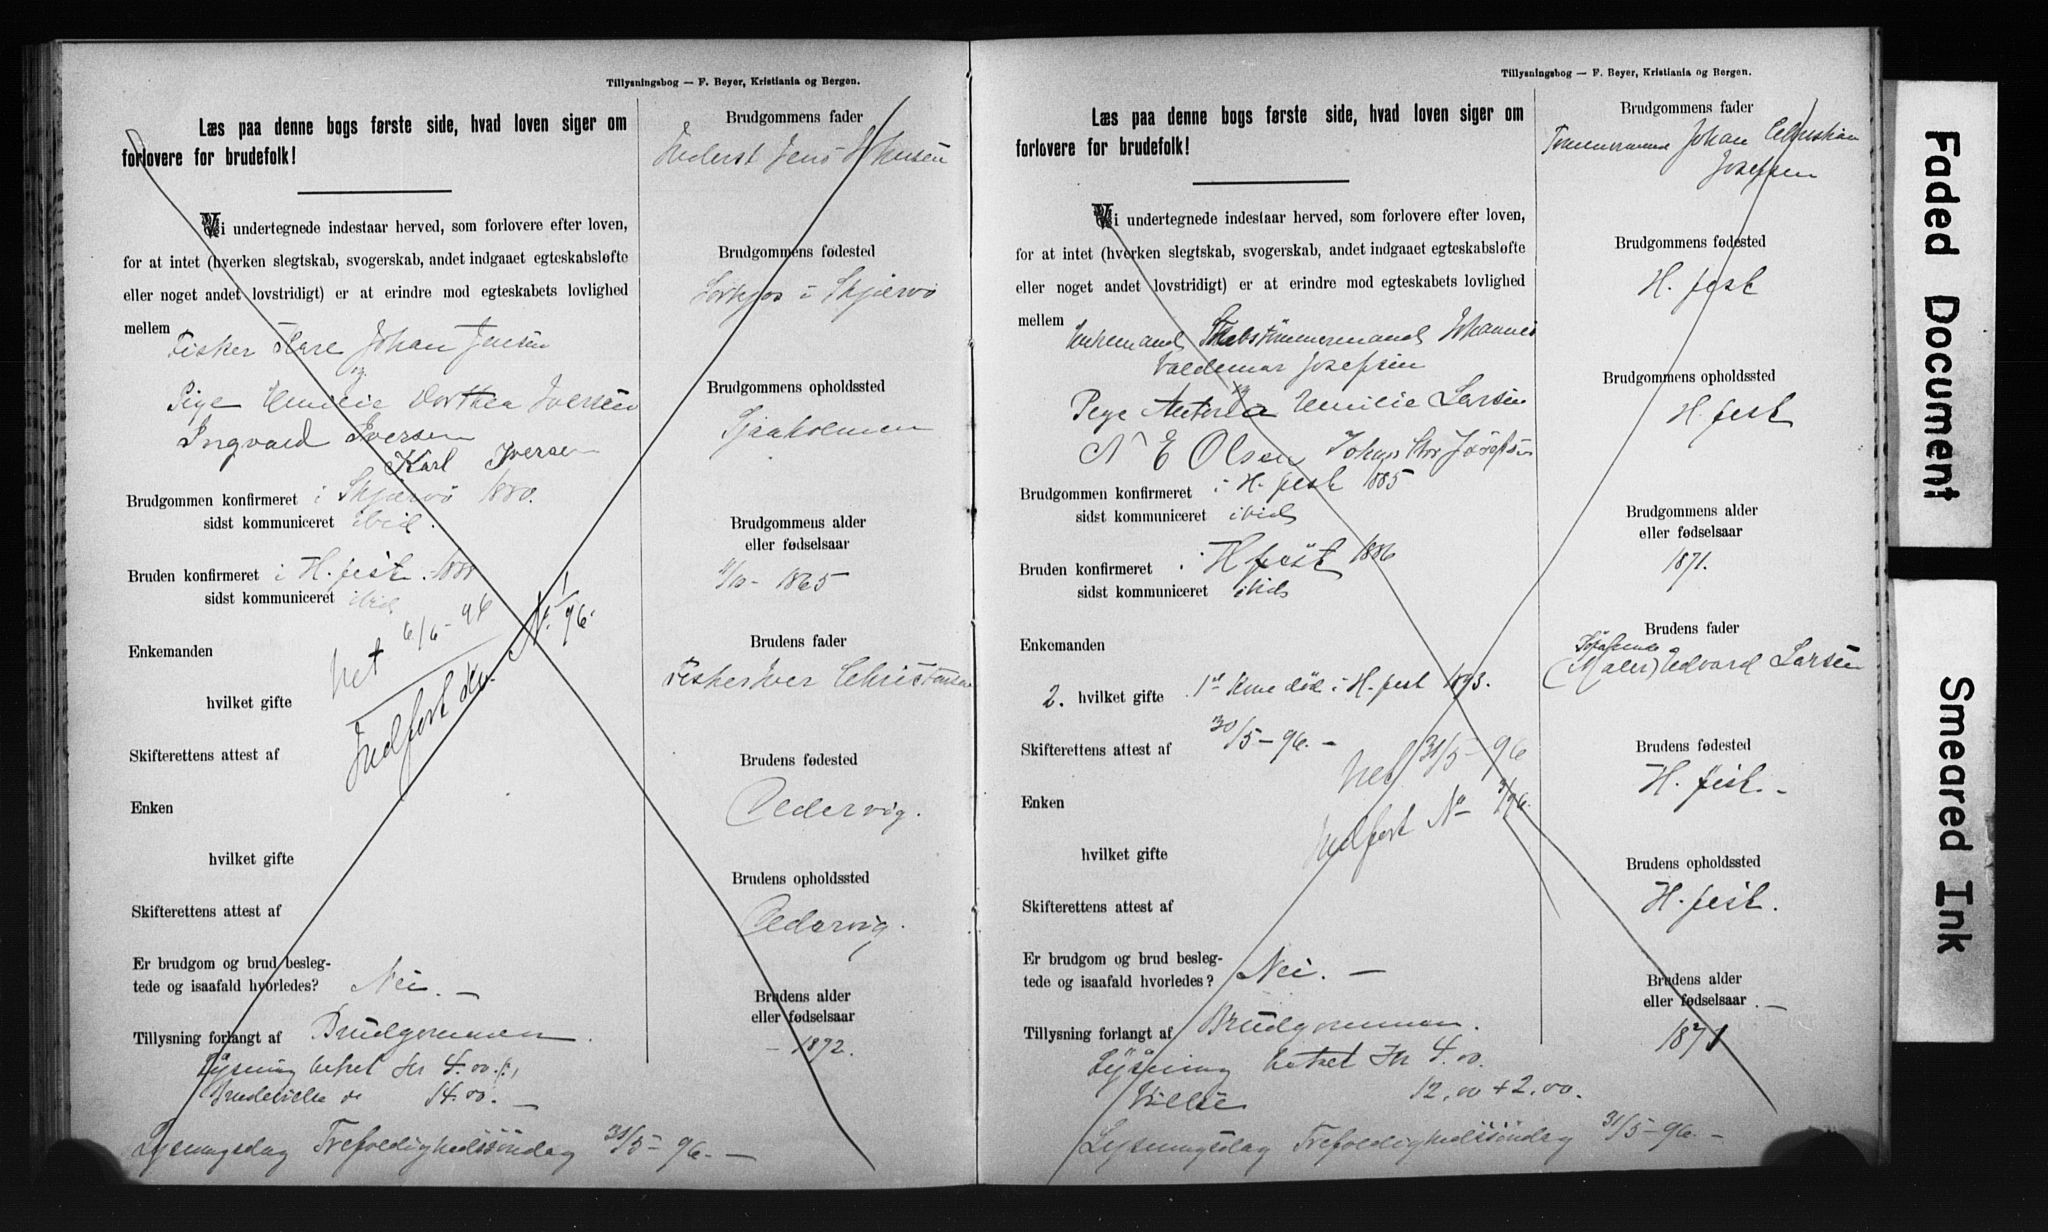 Tillysningsbog — F. Beyer, Kristiania og Bergen.
Læs paa denne bogs første side, hvad loven siger om
forlovere for brudefolk!
Vi undertegnede indestaar herved, som forlovere efter loven,
for at intet (hverken slegtskab, svogerskab, andet indgaaet egteskabsløfte
eller noget andet lovstridigt) er at erindre mod egteskabets lovlighed
mellem
Fisker Hare Johan Jensen
og
Pige Emilie Dorthea Iversen
Ingvard Iversen
Karl Iversen
Brudgommen konfirmeret i Skjervö 1880.
sidst kommuniceret ibid.
Bruden konfirmeret i H.fest. 1888
sidst kommuniceret ibid
Enkemanden
viet 6/6-96
hvilket gifte
Indført No. 1/96.
Skifterettens attest af
Enken
hvilket gifte
Skifterettens attest af
Er brudgom og brud besleg-
tede og isaafald hvorledes? Nei. —
Tillysning forlangt af Brudgommen.
Lysning betalt Kr 4.00
Brudevielse do 14.00. —
Lysningsdag Trefoldighedssöndag 31/5-96. —
Brudgommens fader
Inderst Jens Johnsen
Brudgommens fødested
i Skjervö
Brudgommens opholdssted
Brudgommens alder
eller fødselsaar
1865
Brudens fader
Fisker Iver Christensen
Brudens fødested
Oldervig.
Brudens opholdssted
Oldervig.
Brudens alder
eller fødselsaar
- 1872.
Tillysningsbog — F. Beyer, Kristiania og Bergen.
Læs paa denne bogs første side, hvad loven siger om
forlovere for brudefolk!
Vi undertegnede indestaar herved, som forlovere efter loven,
for at intet (hverken slegtskab, svogerskab, andet indgaaet egteskabsløfte
eller noget andet lovstridigt) er at erindre mod egteskabets lovlighed
mellem
Enkemand Skibstømmermand Johannes
Valdemar Josefsen
og
Pige Antonia Emilie Larsen
N E Olsen Johan Chr Josefsen
Brudgommen konfirmeret i H.fest 1885
sidst kommuniceret ibid
Bruden konfirmeret i H.fest 1886
sidst kommuniceret ibid
Enkemanden
2. hvilket gifte 1st Kone död i H.fest 1893.
Skifterettens attest af 30/5-96. -
viet 31/5-96
Enken
Indført No 9/96.
hvilket gifte
Skifterettens attest af
Er brudgom og brud besleg-
tede og isaafald hvorledes? Nei. —
Tillysning forlangt af Brudgommen.
Lysning betalt Kr 4.00.
Vielse 12.00 + 2.00.
Lysningsdag Trefoldighedssöndag 31/5-96. -
Brudgommens fader
Tömmermand Johan Christian
Josefsen
Brudgommens fødested
H.fest
Brudgommens opholdssted
H.fest
Brudgommens alder
eller fødselsaar
1871.
Brudens fader
(Maler) Edvard Larsen
Brudens fødested
H.fest. -
Brudens opholdssted
H.fest.
Brudens alder
eller fødselsaar —
1871
Faded Document
Smeared Ink